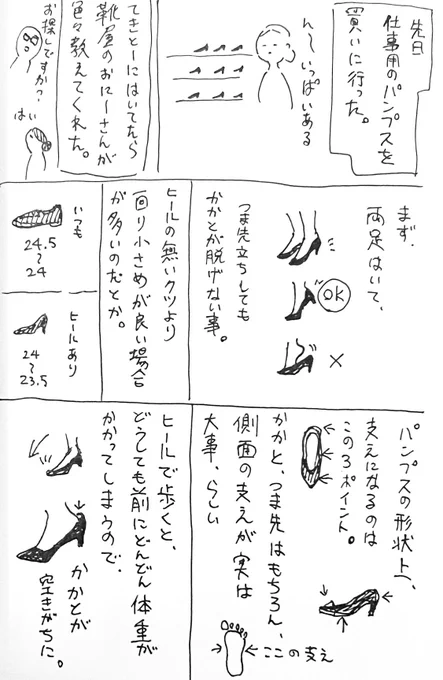 先日
仕事用のパンプスを
買いに行った。
ん〜いっぱいある
てきとーにはいてたら
靴屋のおにーさんが
色々教えてくれた。
お探しですかっ？
はい
まず、
両足はいて、
つま先立ちしても
かかとが脱げない事。
OK
×
ヒールの無いクツより
一回り小さめが良い場合
が多いのだとか。
いつも
24.5
〜
24
ヒールあり
24
〜
23.5
パンプスの形状上、
支えになるのは
この3ポイント。
かかと、つま先はもちろん、
側面の支えが実は
大事、らしい
ここの支え
ヒールで歩くと、
どうしても前にどんどん体重が
かかってしまうので、
かかとが
空きがちに。